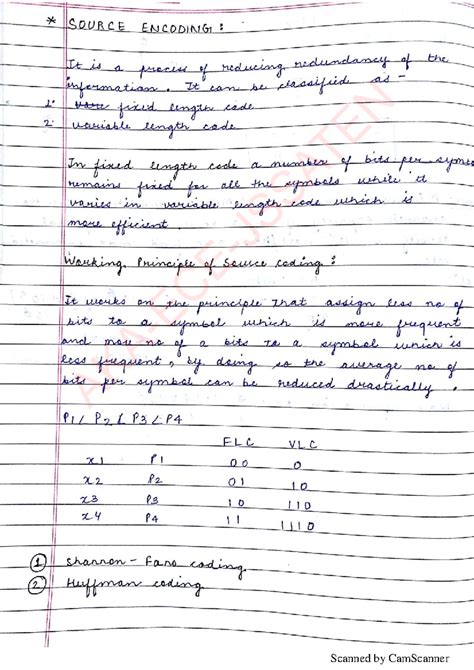 * SOURCE ENCODING :
It is a process of reducing redundancy of the
information. It can be classified as -
1. fixed length code
2. variable length code
In fixed length code a number of bits per symbo
remains fixed for all the symbols while it
varies in variable length code which is
more efficient.
Working Principle of Source coding :
It works on the principle that assign less no of
bits to a symbol which is more frequent
and more no of a bits to a symbol which is
less frequent, by doing so the average no of
bits per symbol can be reduced drastically.
P1 < P2 < P3 < P4
FLC VLC
x1 P1 00 0
x2 P2 01 10
x3 P3 10 110
x4 P4 11 1110
① Shannon - Fano coding
② Huffman coding
AKA-ECE-JSSATEN
Scanned by CamScanner